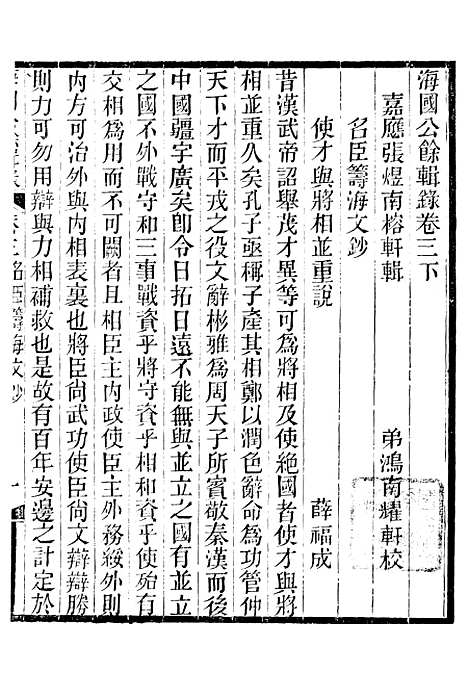 海國公餘輯錄卷三下
嘉應張煜南榕軒輯　弟鴻南耀軒校
名臣籌海文鈔
使才與將相並重說　薛福成
昔漢武帝詔舉茂才異等可爲將相及使絕國者使才與將
相並重久矣孔子亟稱子產其相鄭以潤色辭命爲功管仲
天下才而平戎之役文辭彬雅爲周天子所賓敬秦漢而後
中國疆宇廣矣卽今日拓日遠不能無與並立之國有並立
之國不外戰守和三事戰資乎將守資乎相和資乎使殆有
交相爲用而不可闕者且相臣主內政使臣主外務綏外則
內方可治外與內相表裏也將臣尙武功使臣尙文辯辯勝
則力可勿用辯與力相補救也是故有百年安邊之計定於
卷三名臣籌海文鈔
一